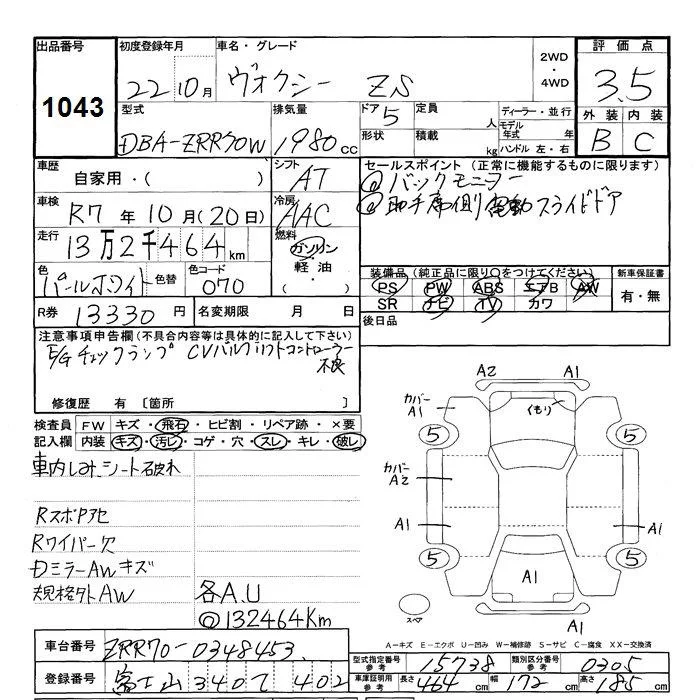 出品番号 初度登録年月 車名・グレード 2WD・4WD 評価点
1043 22 10月 ヴォクシー ZS 3.5
型式 排気量 ドア 5 定員 人 ディーラー・並行 外装 内装
DBA-ZRR70W 1980 cc 形状 積載 kg モデル年式 年 ハンドル 左・右 B C
車歴 自家用・( ) シフト AT セールスポイント (正常に機能するものに限ります)
車検 R7 年 10 月 (20 日) 冷房 AAC ◎バックモニター
◎助手席側電動スライドドア
走行 13万2千464 km 燃料 ガソリン・軽油・( )
色 パールホワイト 色替 色コード 070 装備品 (純正品に限り○をつけてください) 新車保証書
PS PW ABS エアB AW 有・無
SR ナビ TV カワ
R券 13330 円 名変期限 月 日 後日品
注意事項申告欄 (不具合内容等は具体的に記入して下さい)
E/Gチェックランプ CVバルブリフトコントローラー
不良
修復歴 有 〔箇所 〕
検査員 FW キズ・飛石・ヒビ割・リペア跡・×要
記入欄 内装 キズ・汚レ・コゲ・穴・スレ・キレ・破レ
車内しみ、シート破れ
RスポP欠
Rワイパー欠
DミラーAWキズ
規格外AW 各A.U
◎132464Km
A2 A1
カバー A1 くもり
5 5
カバー A2
A1 A1
5 5
A1
スペア A1
A-キズ E-エクボ U-凹み W-補修跡 S-サビ C-腐食 XX-交換済
車台番号 ZRR70-0348453
型式指定番号 参考 15738 類別区分番号 参考 0305
登録番号 富士山 340 て 402
車庫証明用 参考 長さ 464 cm 幅 172 cm 高さ 185 cm